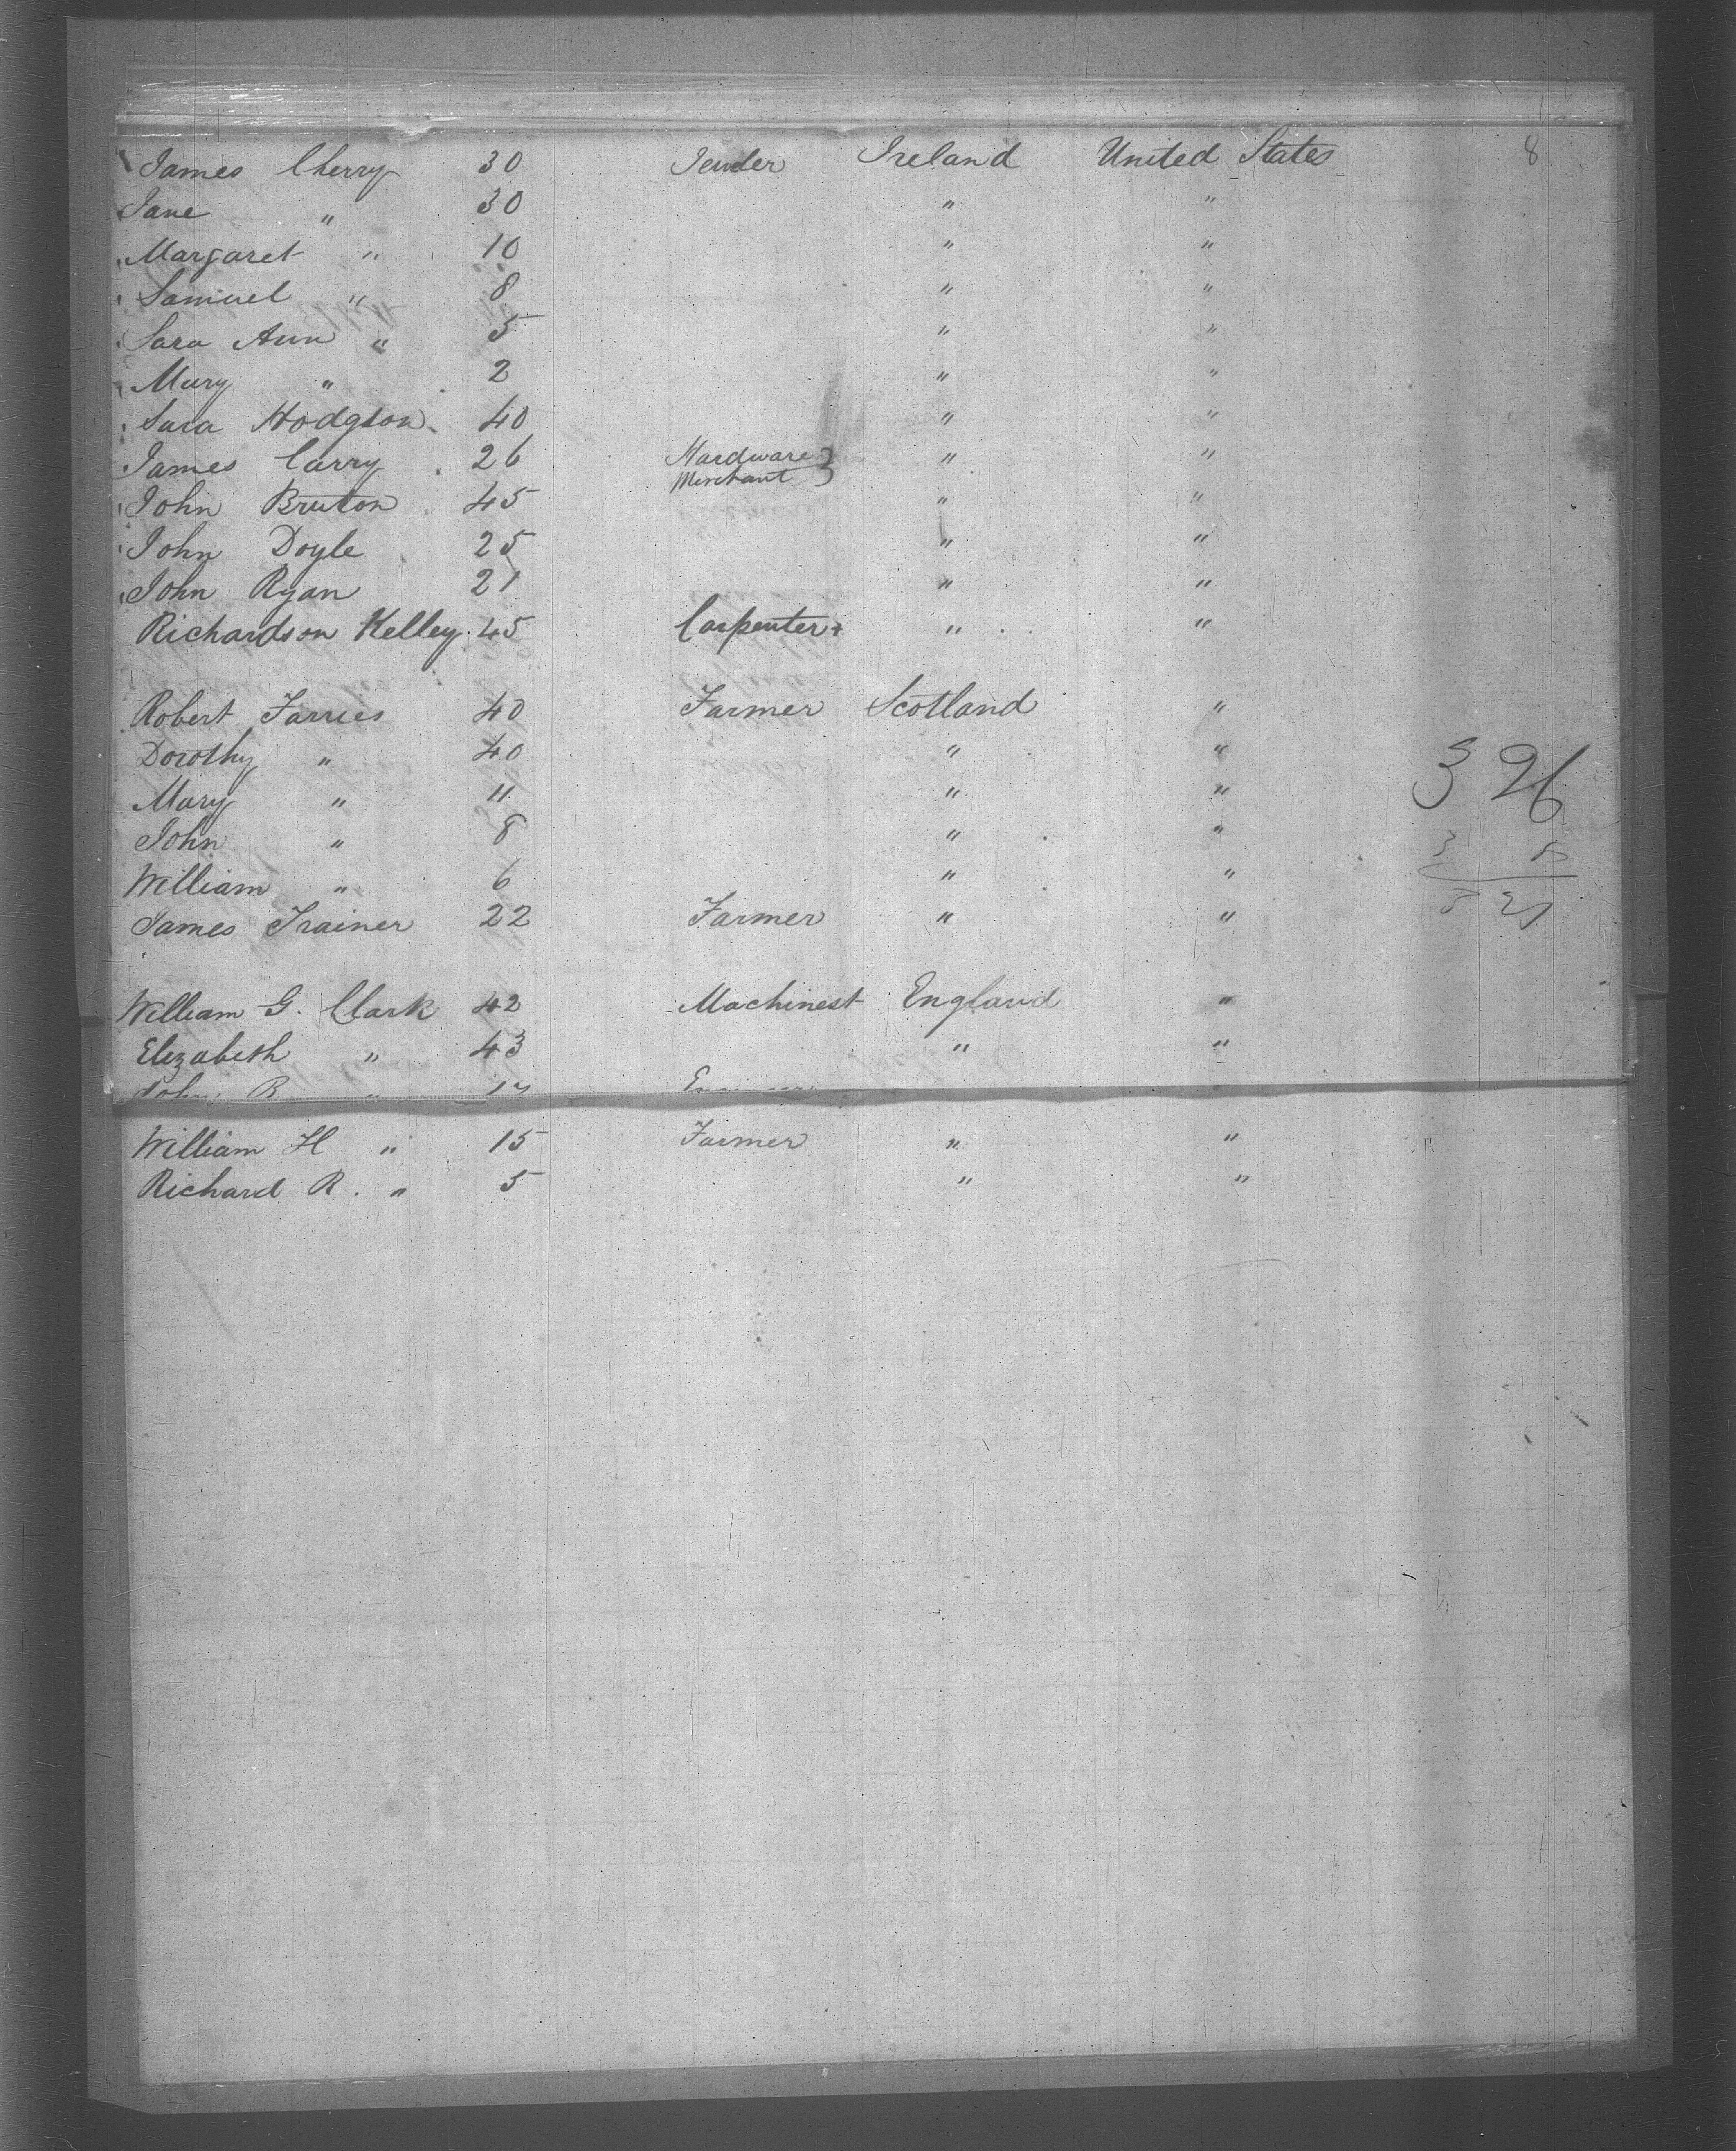 James Cherry 30 Tender Ireland United States 8
Jane " 30 " "
Margaret " 10 " "
Samuel " 8 " "
Sara Ann " 5 " "
Mary " 2 " "
Sara Hodgson 40 " "
James Carry 26 Hardware Merchant } " "
John Bruton 45 " "
John Doyle 25 " "
John Ryan 21 " "
Richardson Kelley 45 Carpenter " "
Robert Farries 40 Farmer Scotland "
Dorothy " 40 " "
Mary " 11 " "
John " 8 " "
William " 6 " "
James Trainer 22 Farmer " "
William G. Clark 42 Machinest England "
Elizabeth " 43 " "
John R " 17 Engineer
William H " 15 Farmer " "
Richard R. " 5 " "